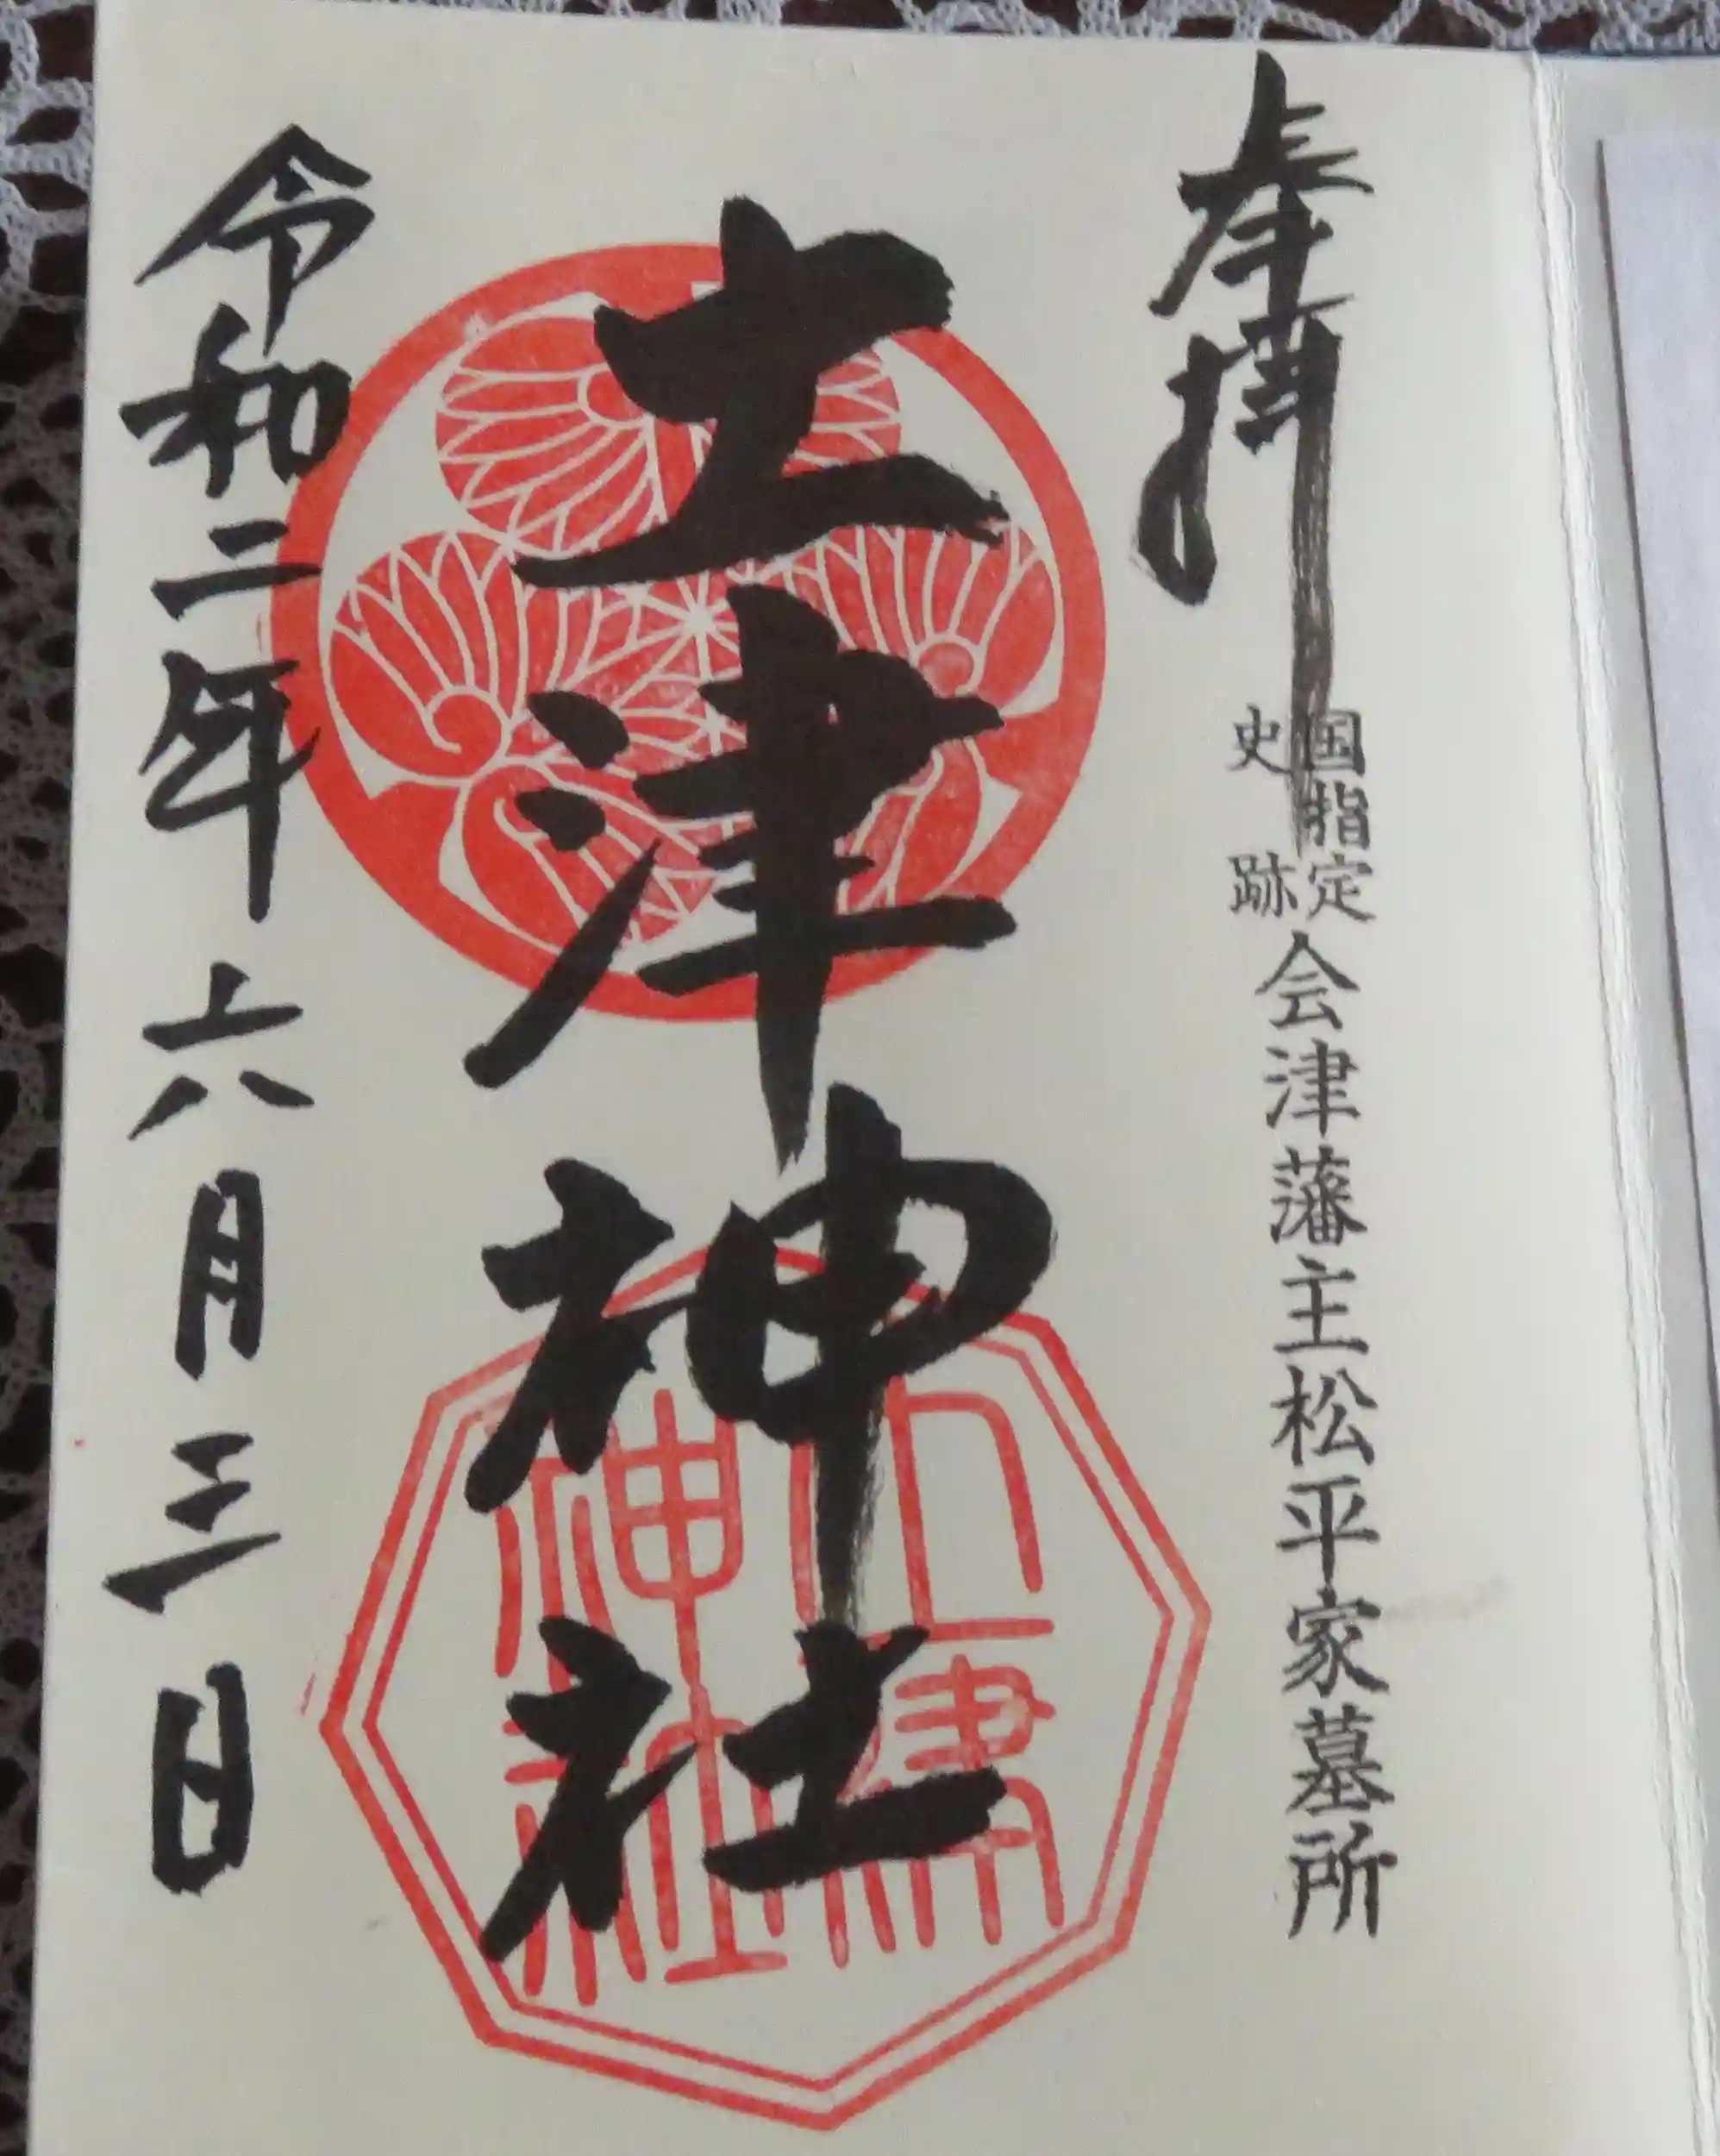 奉拝
国指定
史跡
会津藩主松平家墓所
土津神社
土津
神社
令和二年六月三日